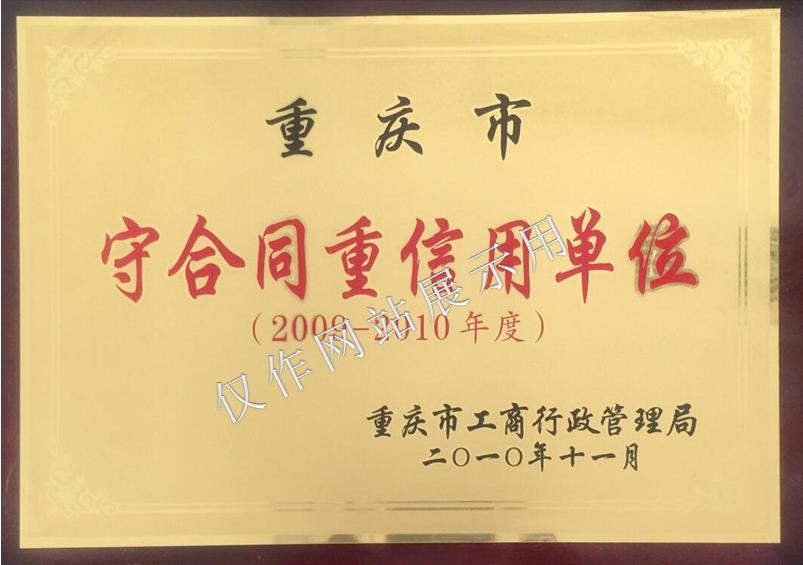 重庆市
守合同重信用单位
(2009-2010年度)
仅作网站展示用
重庆市工商行政管理局
二〇一〇年十一月